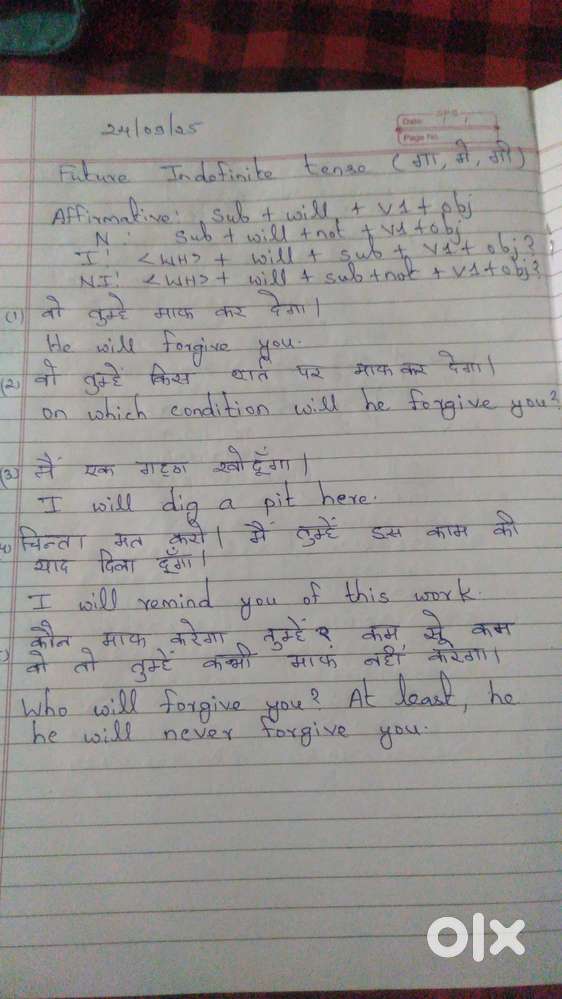 24/09/25
SPS
Date / /
Page No.
Future Indefinite tense (गा, गे, गी)
Affirmative: Sub + will + V1 + obj
N: Sub + will + not + V1 + obj
I: <WH> + will + sub + V1 + obj?
NI: <WH> + will + sub + not + V1 + obj?
(1) वो तुम्हे माफ कर देगा।
He will forgive you.
(2) वो तुम्हें किस शर्त पर माफ कर देगा।
on which condition will he forgive you?
(3) मैं एक गट्ठा खोदूँगा।
I will dig a pit here.
चिन्ता मत करो। मैं तुम्हें इस काम की
याद दिला दूँगा।
I will remind you of this work.
कौन माफ करेगा तुम्हें? कम से कम
वो तो तुम्हें कभी माफ नहीं करेगा।
Who will forgive you? At least, he
he will never forgive you.
olx